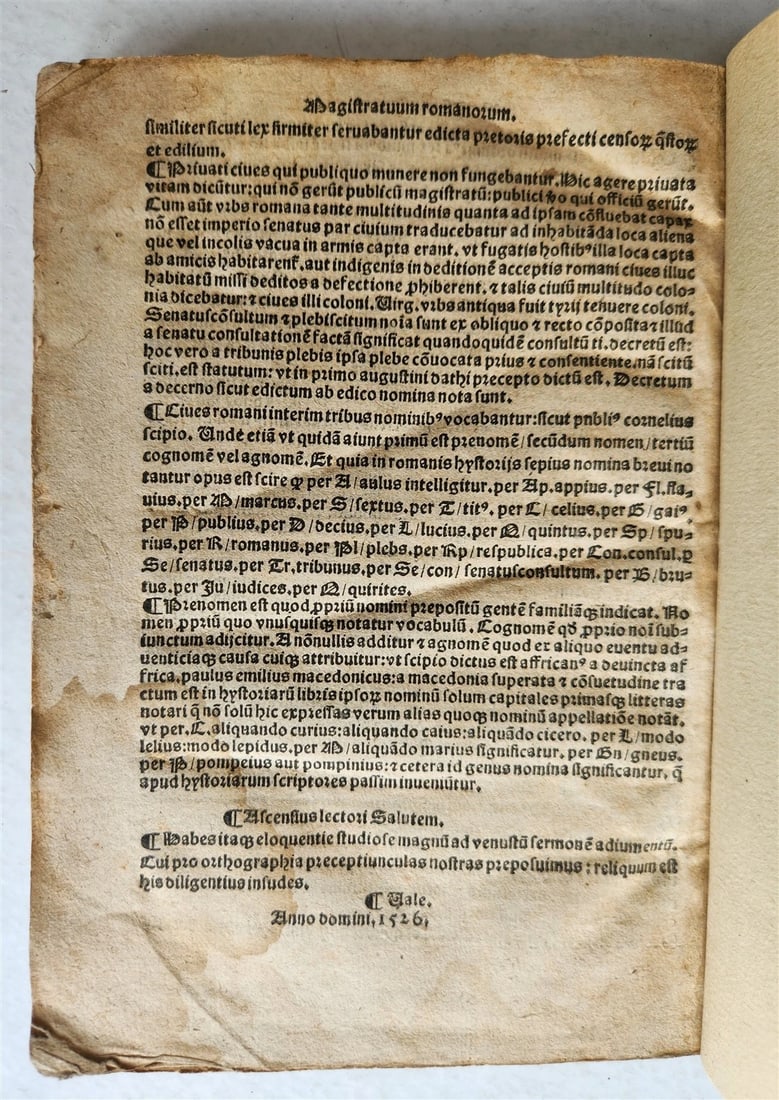 Magistratuum romanorum.
similiter sicuti lex firmiter seruabantur edicta pretoris prefecti censoꝝ q̃stoꝝ
et edilium.
¶Priuati ciues qui publiquo munere non fungebantur. Hic agere priuata
vitam dicũtur: qui nõ gerũt publicũ magistratũ: publici ꝟo qui officiũ gerũt.
Cum aũt vrbs romana tante multitudinis quanta ad ipsam cõfluebat capax
nõ esset imperio senatus par ciuium traducebatur ad inhabitãda loca aliena
que vel incolis vacua in armis capta erant. vt fugatis hostibꝰ illa loca capta
ab amicis habitarent᷑. aut indigenis in deditionẽ acceptis romani ciues illuc
habitatũ missi deditos a defectione ꝓhiberent. ⁊ talis ciuiũ multitudo colo⸗
nia dicebatur: ⁊ ciues illi coloni. Uirg. vrbs antiqua fuit tyrij tenuere coloni.
Senatuscõsultum ⁊ plebiscitum noĩa sunt ex obliquo ⁊ recto cõposita ⁊ illud
a senatu consultationẽ factã significat quandoquidẽ consultũ ti. decretũ est:
hoc vero a tribunis plebis ipsa plebe cõuocata prius ⁊ consentiente. nã scitũ
sciti. est statutum: vt in primo augustini dathi precepto dictũ est. Decretum
a decerno sicut edictum ab edico nomina nota sunt.
¶Ciues romani interim tribus nominibꝰ vocabantur: sicut pnbliꝰ cornelius
scipio. Unde etiã vt quidã aiunt primũ est prenomẽ / secũdum nomen / tertiũ
cognomẽ vel agnomẽ. Et quia in romanis hystorijs sepius nomina breui no
tantur opus est scire ꝙ per A / aulus intelligitur. per Ap. appius. per Fl. fla⸗
uius. per M / marcus. per S / sextus. per T / titꝰ. per C / celius. per G / gaiꝰ
per P / publius. per D / decius. per L / lucius. per Q / quintus. per Sp / spu⸗
rius. per R / romanus. per Pl / plebs. per Rp / respublica. per Con. consul. ꝑ
Se / senatus. per Tr. tribunus. per Se / con / senatusconsultum. per B / bru⸗
tus. per Ju / iudices. per Q / quirites.
¶Prenomen est quod ꝓpriũ nomini prepositũ gentẽ familiãqꝫ indicat. No
men ꝓpriũ quo vnusquisqꝫ notatur vocabulũ. Cognomẽ qď ꝓprio noĩ sub⸗
iunctum adijcitur. A nõnullis additur ⁊ agnomẽ quod ex aliquo euentu ad⸗
uenticiaqꝫ causa cuiqꝫ attribuitur: vt scipio dictus est affricanꝰ a deuincta af
frica. paulus emilius macedonicus: a macedonia superata ⁊ cõsuetudine tra
ctum est in hystoriarũ libris ipsoꝝ nominũ solum capitales primasqꝫ litteras
notari q̃ nõ solũ hic expressas verum alias quoqꝫ nominũ appellatiõe notãt.
vt per. C. aliquando curius: aliquando caius: aliquãdo cicero. per L / modo
lelius: modo lepidus. per M / aliquãdo marius significatur. per Gn / gneus.
per P / pompeius aut pompinius: ⁊ cetera id genus nomina significantur. q̃
apud hystoriarum scriptores passim inueniũtur.
¶Ascensius lectori Salutem.
¶Habes itaqꝫ eloquentie studiose magnũ ad venustũ sermonẽ adiumentũ.
Cui pro orthographia preceptiunculas nostras preposuimus: reliquum est
his diligentius insudes.
¶Uale.
Anno domini. 1526.